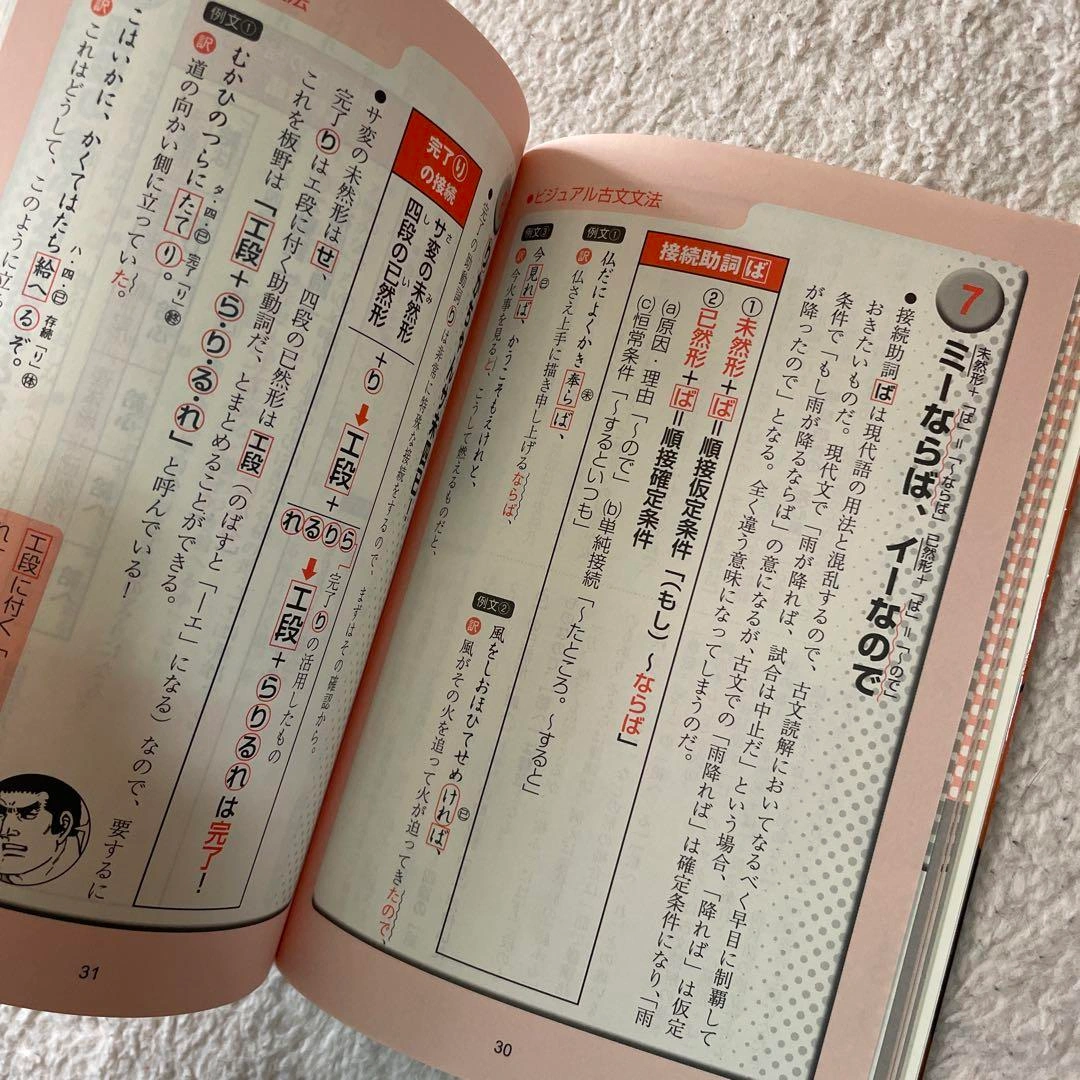 ●ビジュアル古文文法
7
ミーならば、イーなので
未然形+「ば」=「〜ならば」 已然形+「ば」=「〜ので」
●接続助詞ばは現代語の用法と混乱するので、古文読解においてなるべく早目に制覇して
おきたいものだ。現代文で「雨が降れば、試合は中止だ」という場合、「降れば」は仮定
条件で「もし雨が降るならば」の意になるが、古文での「雨降れば」は確定条件になり、「雨
が降ったので」となる。全く違う意味になってしまうのだ。
接続助詞ば
①未然形+ば=順接仮定条件「(もし)〜ならば」
②已然形+ば=順接確定条件
(a)原因・理由「〜ので」 (b)単純接続「〜たところ。〜すると」
(c)恒常条件「〜するといつも」
例文①
仏だによくかき奉らば、
未
訳 仏さえ上手に描き申し上げるならば、
例文②
風をしおほひてせめければ、
已
訳 風がその火を追って火が迫ってきたので、
例文③
今見れば、かうこそもえけれと、
已
訳 今火事を見ると、こうして燃えるものだと、
30
完了の助動詞りは非常に特殊な接続をするので、まずはその確認から。
完了りの接続
サ変の未然形
さ み
四段の已然形
し い
+り
➡
エ段+らりるれ
完了りの活用したもの
➡
エ段+らりるれは完了!
●サ変の未然形はせ、四段の已然形はエ段(のばすと「ーエ」になる)なので、要するに
完了りはエ段に付く助動詞だ、とまとめることができる。
これを板野は「エ段+ら・り・る・れ」と呼んでいる!
例文①
むかひのつらにたてり。
タ・四・已 完了「り」終
訳 道の向かい側に立っていた。
こはいかに、かくてはたち給へるぞ。
ハ・四・已 存続「り」体
訳 これはどうして、このように立ち
エ段に付く「
31